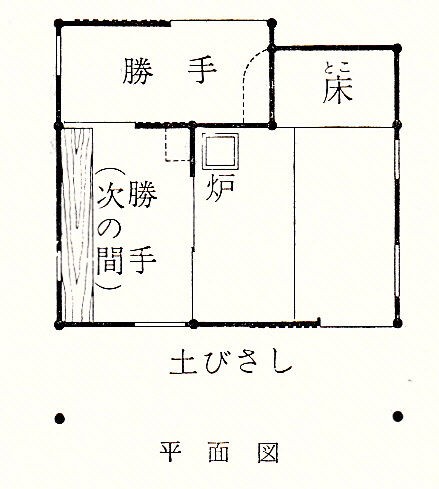 勝手
とこ
床
炉
勝手
(次の間)
土びさし
平面図